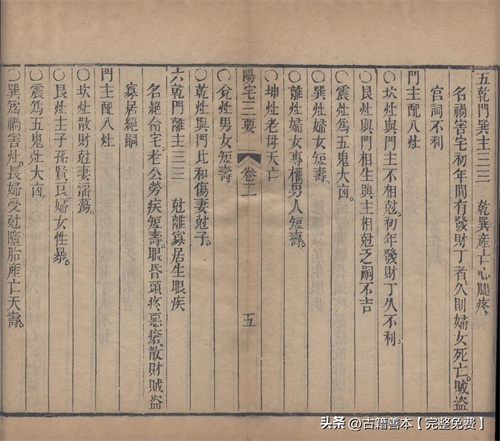 五乾門巽主三三　乾巽產亡心腿疼
名禍害宅初年間有發財丁者久則婦女死亡賊盜
官詞不利
門主配八灶
○坎灶與門主不相尅初年發財丁久不利
○艮灶與門相生與主相尅乏嗣不吉
○震灶爲五鬼灶大凶
○巽灶婦女短壽
○離灶婦女專權男人短壽
○坤灶老母夭亡
陽宅三要
卷二
五
○兌灶男女短壽
○乾灶與門比和傷妻尅子
六乾門離主三三　尅離寡居生眼疾
名絕命宅老公勞疾短壽眼昏頭疼惡瘡散財賊盜
寡居絕嗣
門主配八灶
○坎灶散財尅妻濡蕩
○艮灶主子孫賢良婦女性暴
○震爲五鬼灶大凶
○巽爲禍害灶長婦受尅墮胎產亡夭壽
头条 @古籍善本【完整免费】